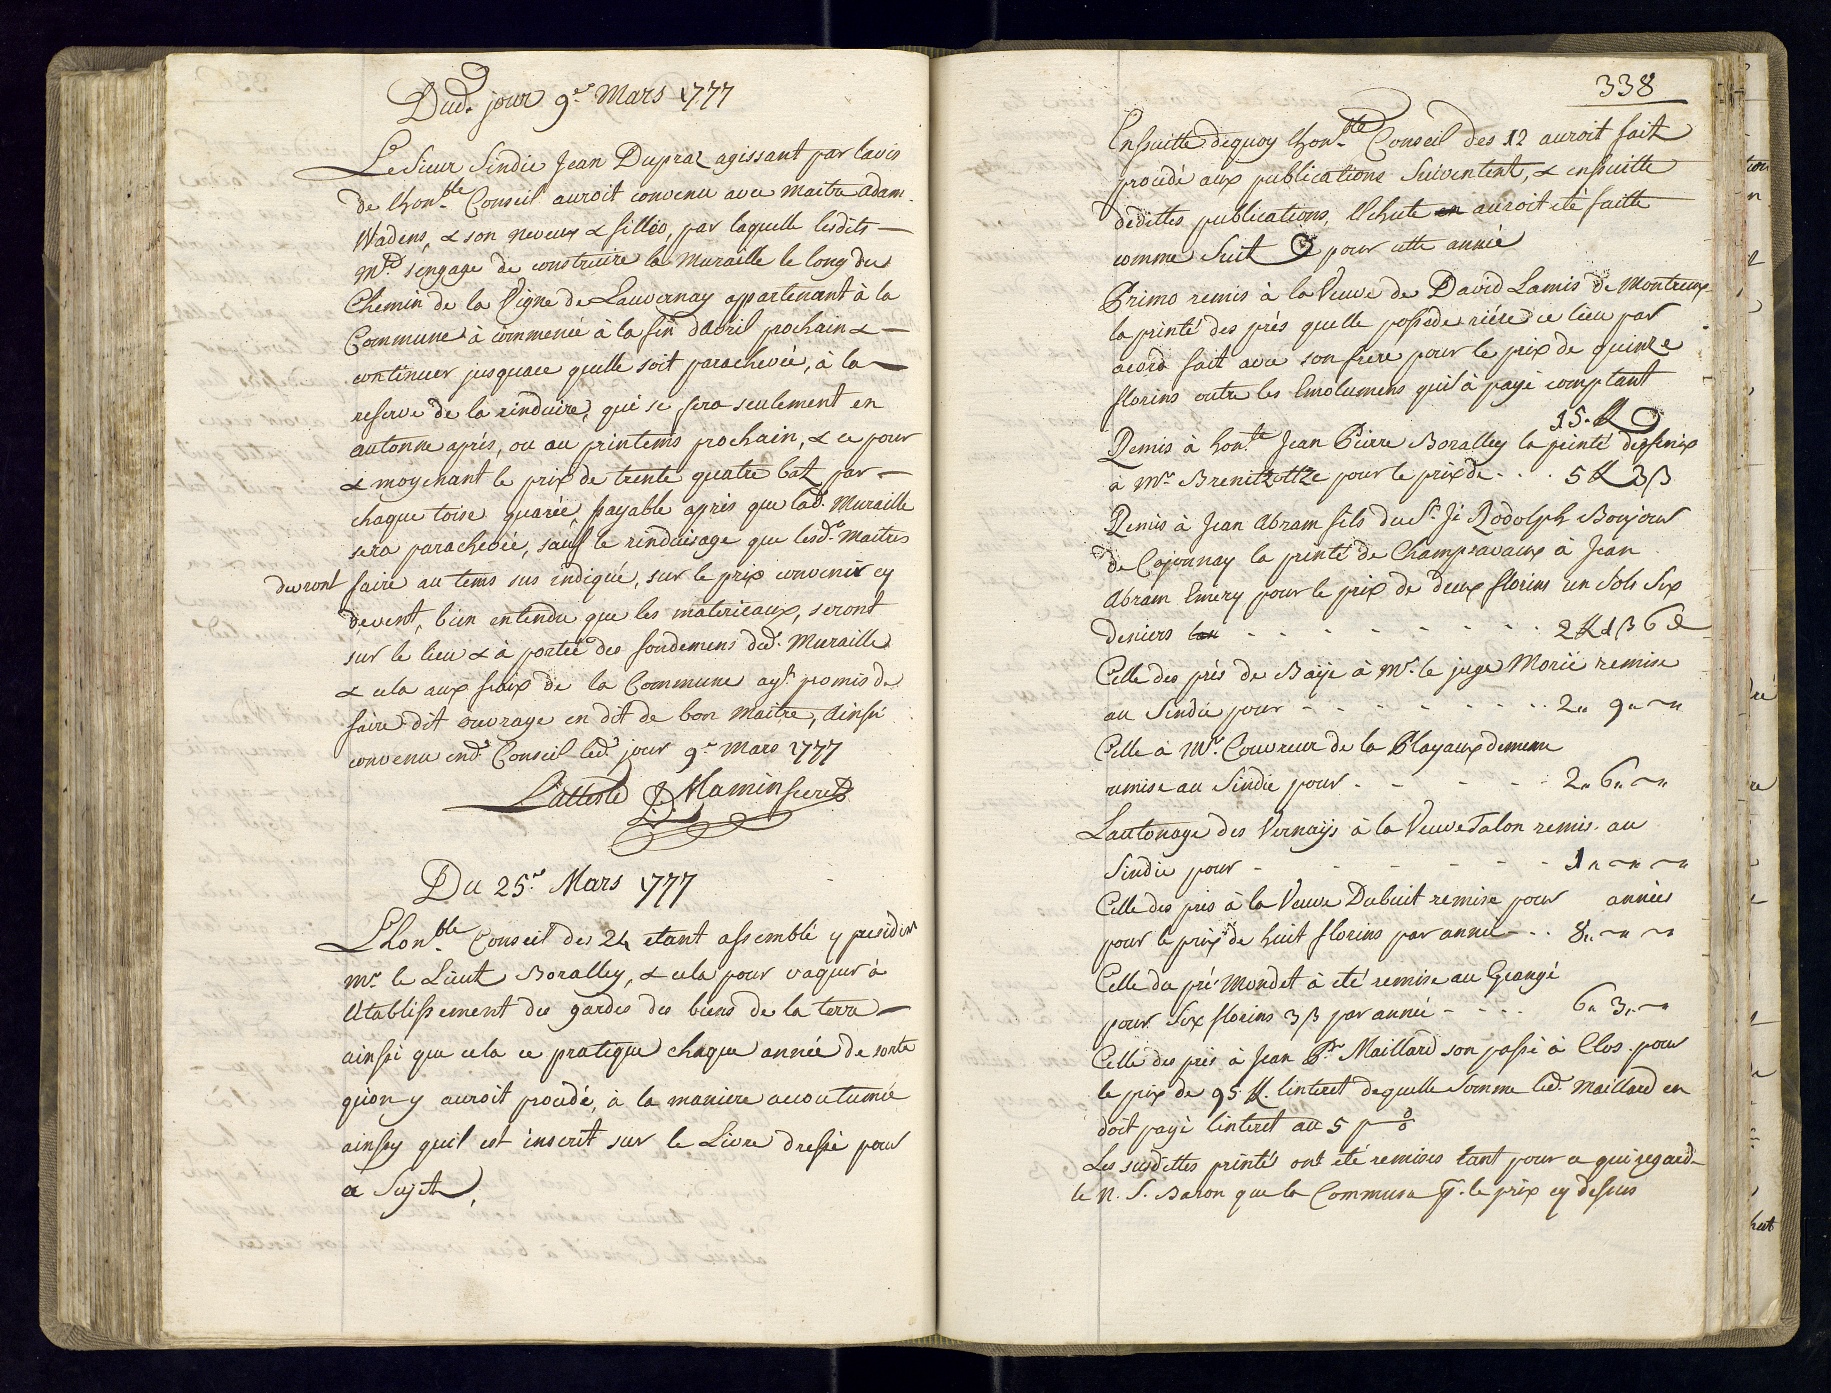 Dud. jour 9.e Mars 1777
Le Sieur Sindic Jean Dupraz agissant par lavis
de lhon.ble Conseil auroit convenu avec maitre adam
Wadens, & son neveux & filliō, par laquelle lesdits
M.rs s'engage de construire la Muraille le long du
Chemin de la Vigne de Lauvernay appartenant à la
Commune à commencé à la fin davril prochain &
continuer jusquace quelle soit parachevée, à la
reserve de la rinduire, qui se fera seulement en
autonne après, ou au printems prochain, & ce pour
& moyenant le prix de trente quatre batz par
chaque toise quarée payable après que lad. Muraille
sera parachevée, sauf le rinduisage que lesd. Maitres
devront faire au tems sus indiqué, sur le prix convenir cy
devent, bien entendu que les materieaux, seront
sur le lieu & à portée des fondemens dud. Muraille
& cela aux fraix de la Commune ay.t promis de
faire dit ouvrage en dit de bon maitre, Ainsi
convenu end. Conseil led. jour 9.e Mars 1777
L'atteste D Mamin secret.
Du 25.e Mars 1777
Lhon.ble Conseil des 24 etant assemblé y president
Mr. le Lieut Boralley, & cela pour vaquer à
létablissement des gardes des biens de la terre
ainssi que cela ce pratique chaque année de sorte
quion y auroit proudé, à la maniere accoutumée
ainssy quil est inscrit sur le Livre dressé pour
ce Sujet,
338
Ensuitte dequoy lhon.ble Conseil des 12 auroit fait
proudé aux publications Suiventent, & ensuitte
dédittes publications, l'chute en auroit été faitte
comme Suit pour cette année
Primo remis à la Veuve de David Lamis de Montreux
la printé des prés quelle possede riére ce lieu par
acord fait avec son frere pour le prix de quinze
florins outre les Emolumens quil à payé comptant
15. fl
Remis à hon.te Jean Pierre Boralley la printé dessenix
à Mr. Brenitzottze pour le prix de - - . 5 fl 3 ß
Remis à Jean Abram fils du S.r Jé Rodolph Bonjour
de Cojonnay la printé de Champsavaux à Jean
Abram Emery pour le prix de deux florins un Sols Six
deniers - - - - - - - 2 fl 1 ß 6 d
Celle des prés de Baÿe à Mr. le juge Morié remise
au Sindic pour - - - - - - - 2 " 9 " ~ "
Celle à Mr. Couvreur de la Playaux demême
remise au Sindic pour - - - - - 2 " 6 " ~ "
Lautonage des Vernaÿs à la Veuve Talon remis au
Sindic pour - - - - - - 1 " ~ " ~ "
Celle des prés à la Veuve Dubuit remise pour années
pour le prix de huit florins par année - - . 8 " ~ " ~ "
Celle du pré Mondet à été remise au Grangé
pour Six florins 3 ß par année - - - . 6 " 3 " ~ "
Celle des prés à Jean P.re Maillard son passé à Clos. pour
le prix de 95 fl. linteret dequelle Somme led. Maillard en
doit payé linteret au 5 p %
Les susdittes printés ont été remises tant pour ce qui regard-
le N. S. Baron que la Commune p. le prix cy dessus